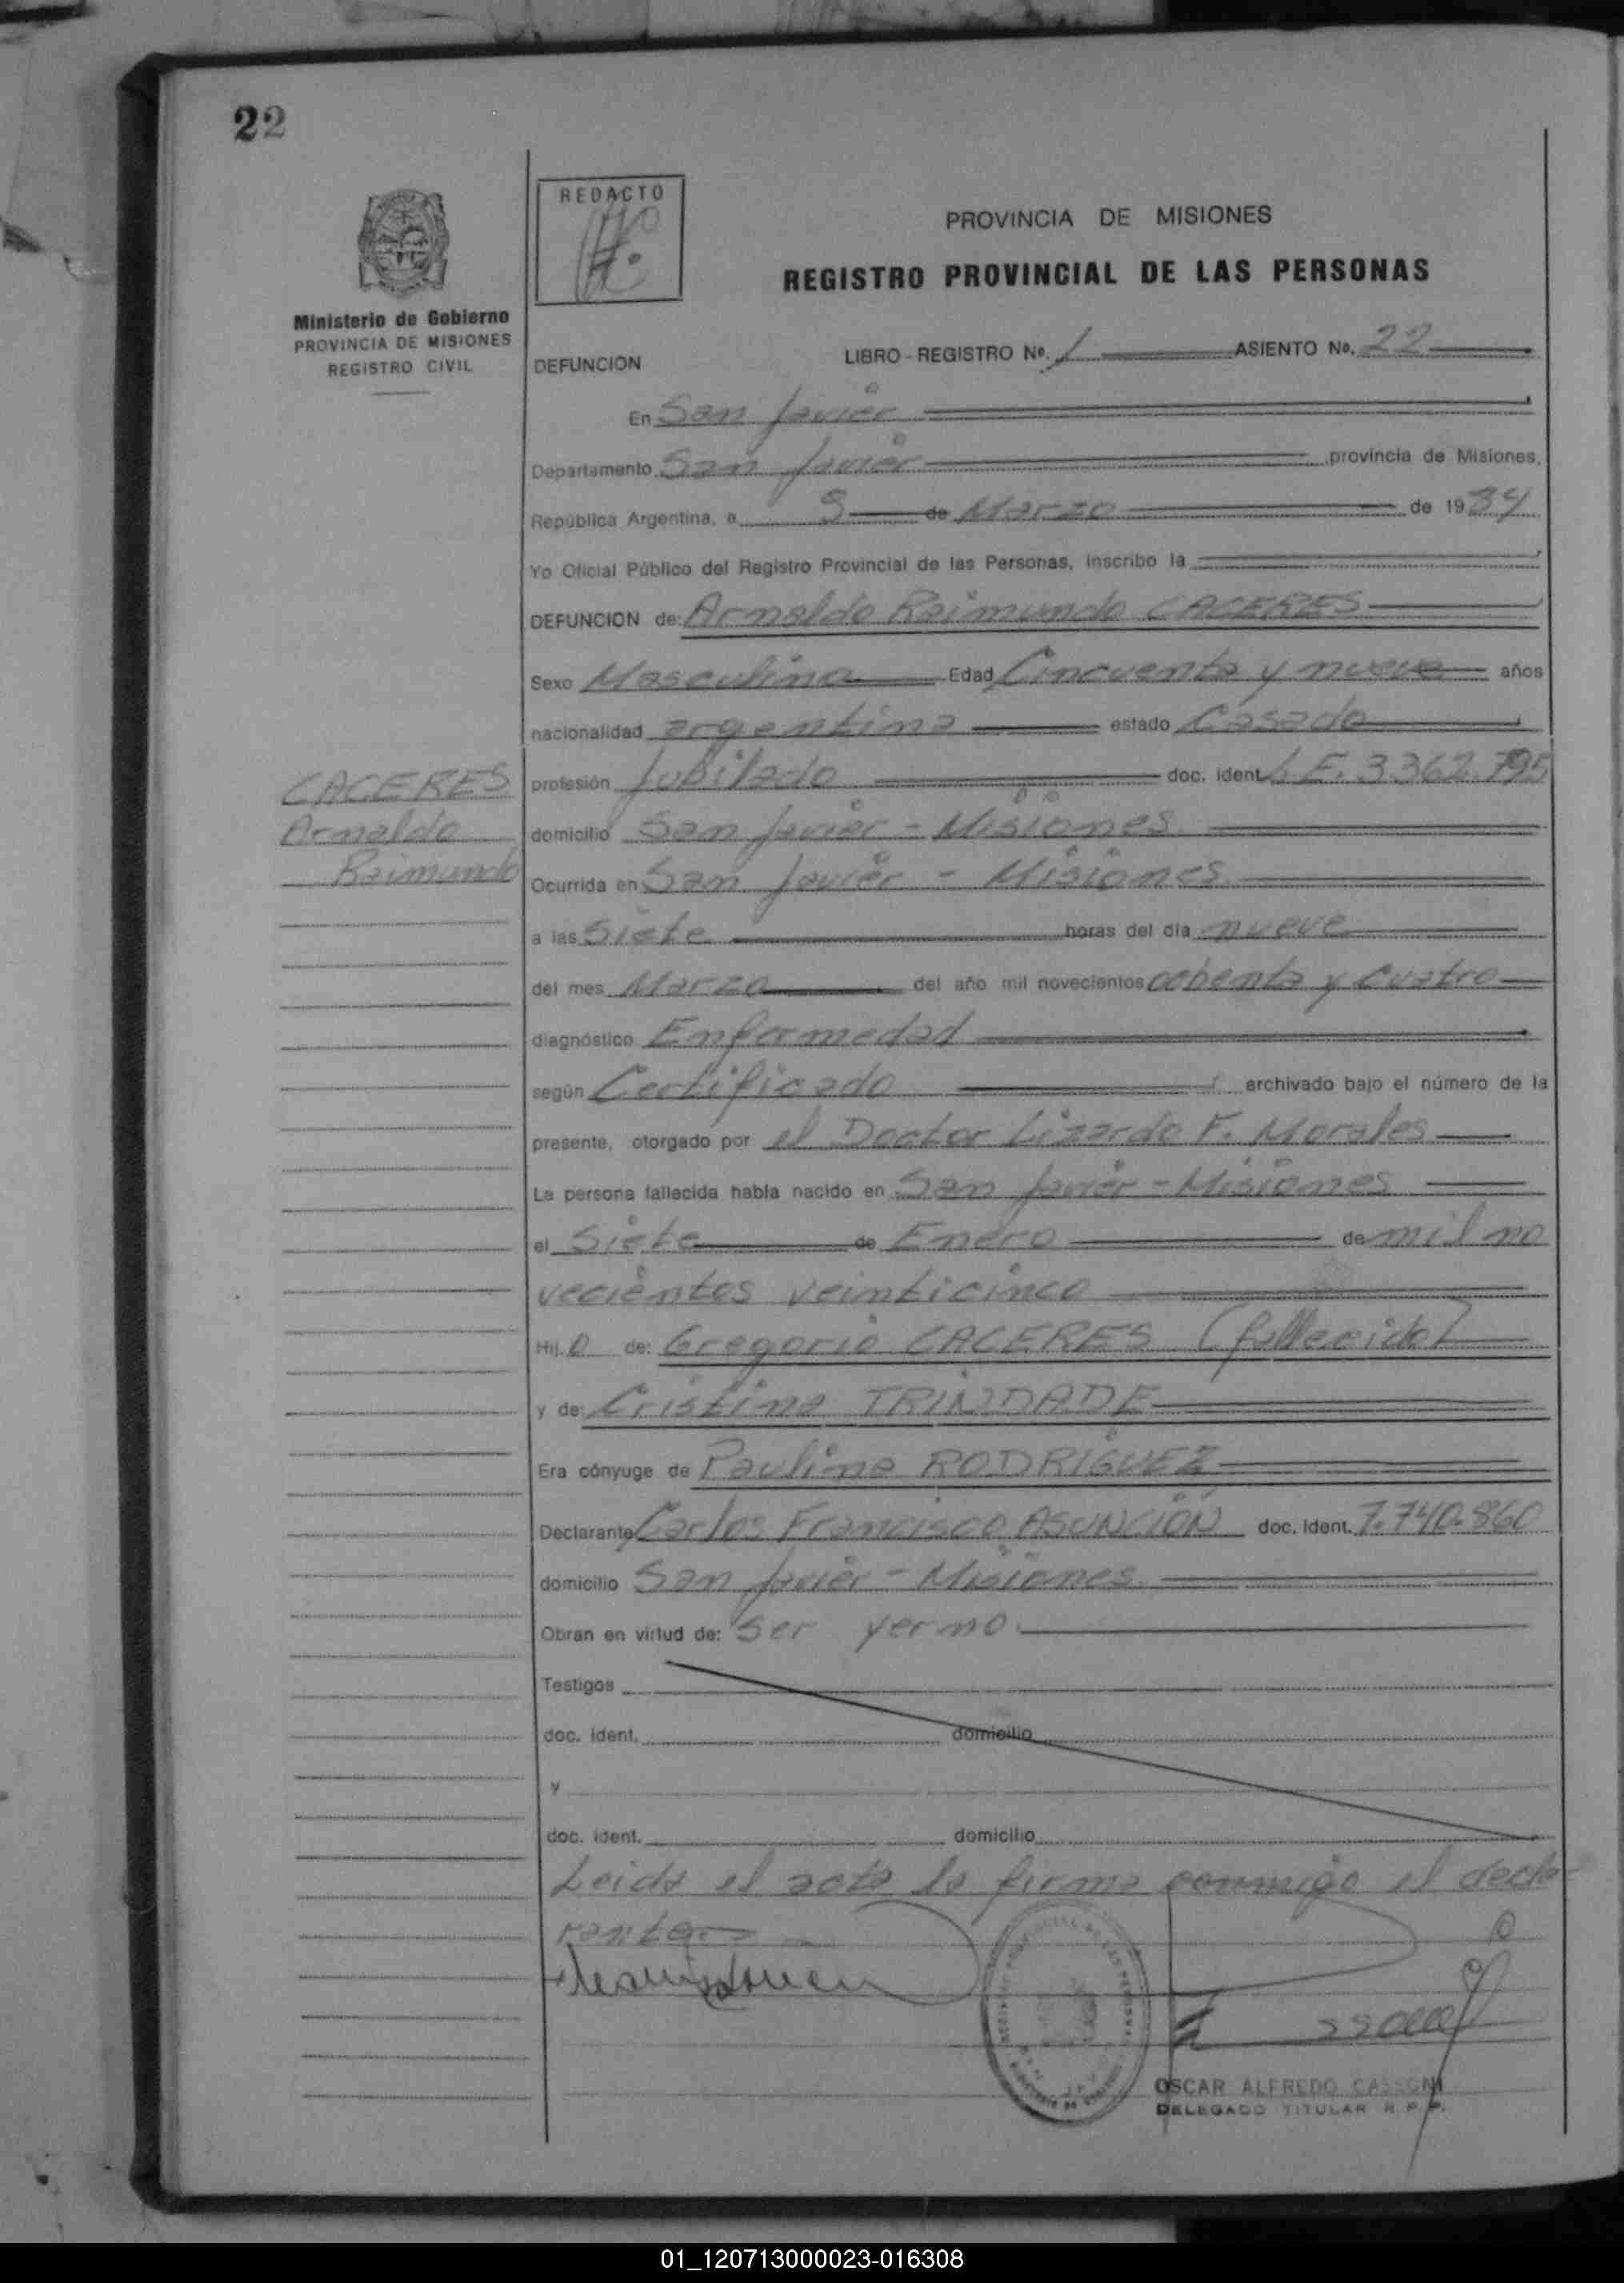 22
REDACTO
PROVINCIA DE MISIONES
REGISTRO PROVINCIAL DE LAS PERSONAS
Ministerio de Gobierno
PROVINCIA DE MISIONES
REGISTRO CIVIL
DEFUNCION LIBRO - REGISTRO Nº. 1 ASIENTO No. 22
En San Javier
Departamento San Javier provincia de Misiones,
República Argentina, a 9 de Marzo de 1984
Yo Oficial Público del Registro Provincial de las Personas, inscribo la
DEFUNCION de: Arnaldo Raimundo CACERES
Sexo Masculino Edad Cincuenta y nueve años
nacionalidad argentina estado Casado
CACERES
Arnaldo
Raimundo
profesión Jubilado doc. ident. L.E. 3.362.795
domicilio San Javier - Misiones
Ocurrida en San Javier - Misiones
a las Siete horas del día nueve
del mes Marzo del año mil novecientos ochenta y Cuatro
diagnóstico Enfermedad
según Certificado archivado bajo el número de la
presente, otorgado por el Doctor Lizardo F. Morales
La persona fallecida había nacido en San Javier - Misiones
el Siete de Enero de mil no
vecientos veinticinco
Hij.o de: Gregorio CACERES (fallecido)
y de: Cristina TRINDADE
Era cónyuge de Paulina RODRIGUEZ
Declarante Carlos Francisco ASUNCION doc. ident. 7.740.860
domicilio San Javier - Misiones
Obran en virtud de: Ser yerno
Testigos
doc. ident. domicilio
y
doc. ident. domicilio
Leida el acta la firma conmigo el decla
rante
OSCAR ALFREDO CASSONI
DELEGADO TITULAR R. P. P.
01_120713000023-016308